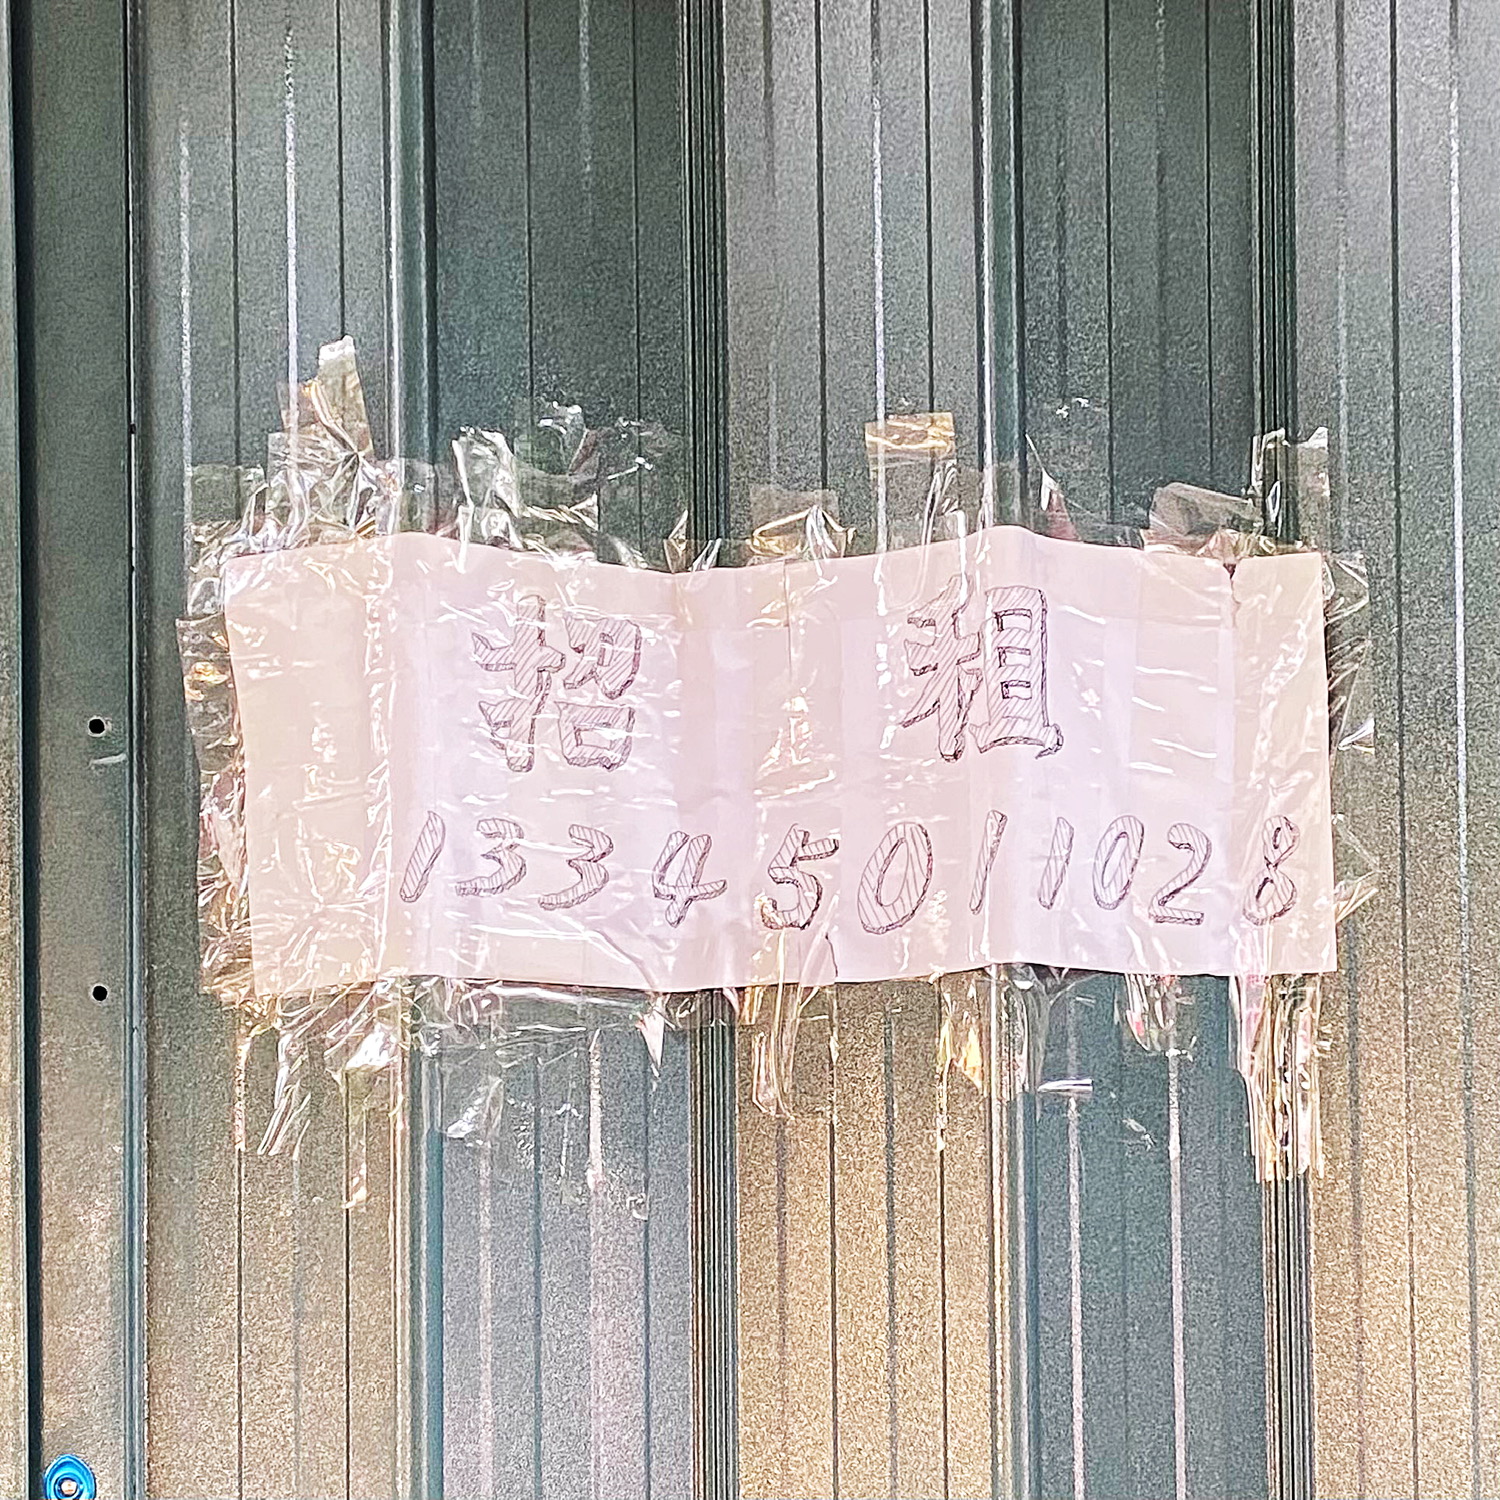 招 租
13345011028